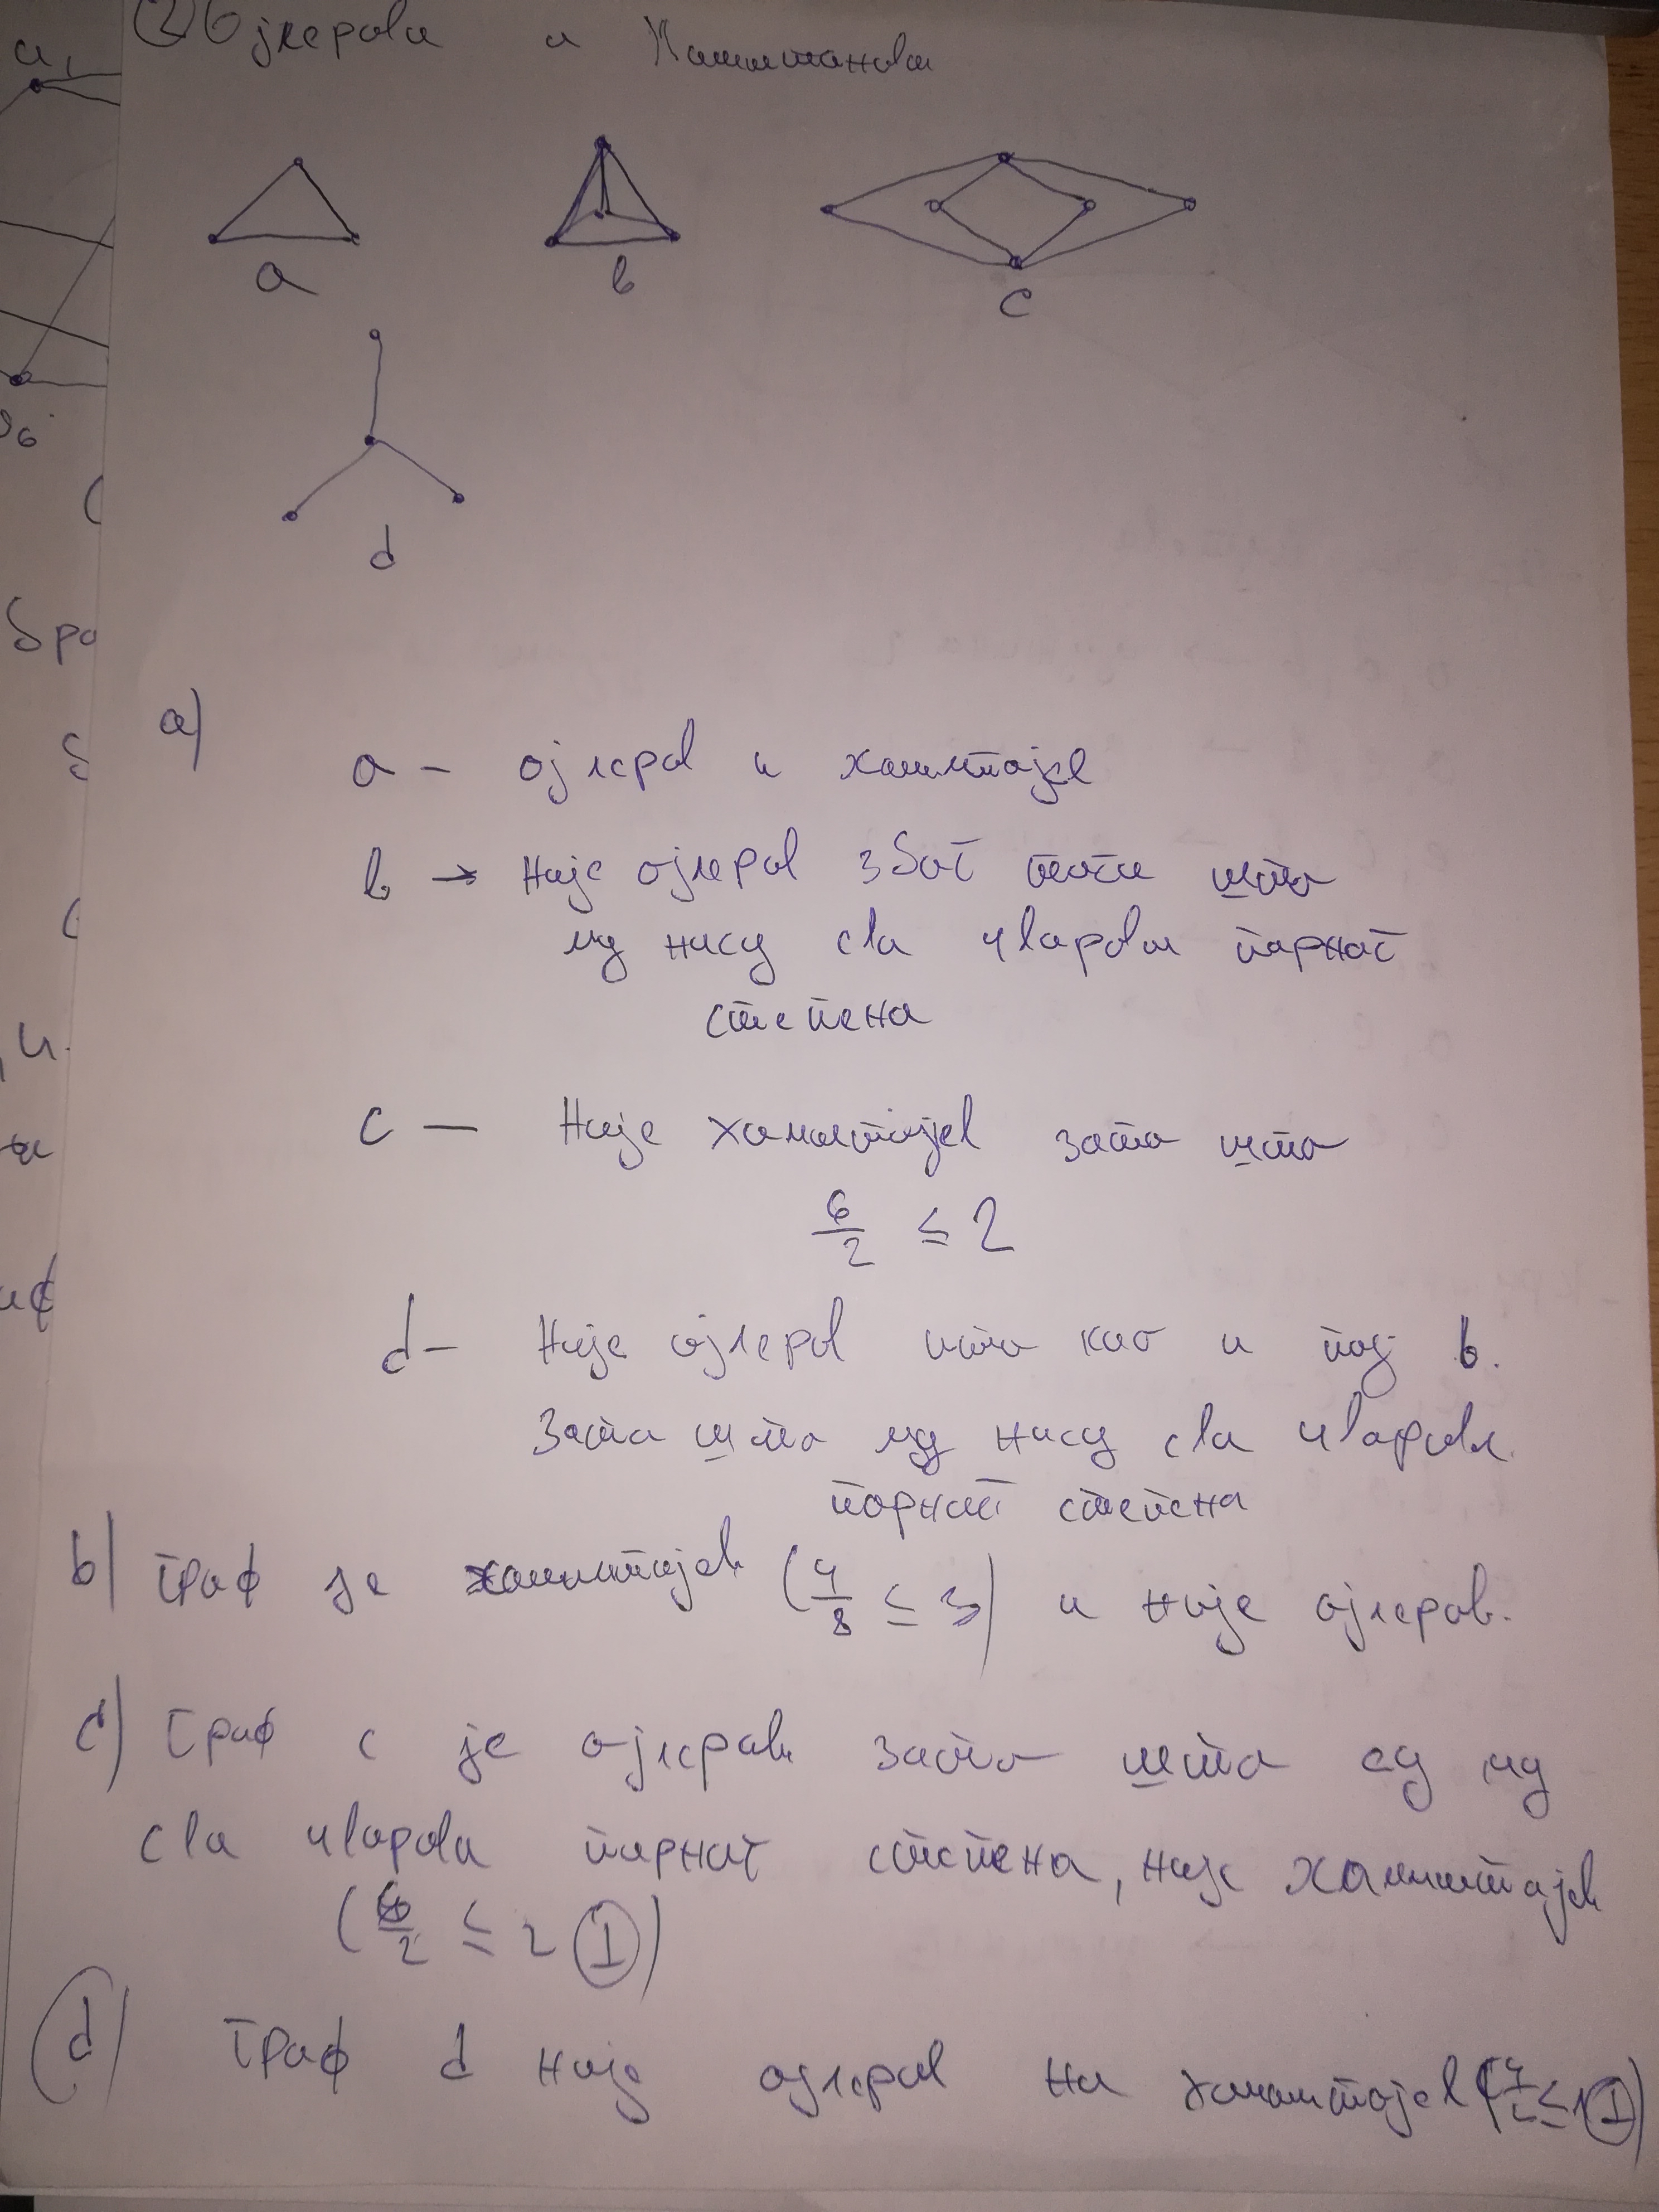 ② Ојлерови и Хамилтонови
a
b
c
d
a)
a – ојлеров и хамилтојев
b → Није ојлеров због тога што
му нису сва чворови парног
степена
c – Није хамилтојев зато што
6/2 ≤ 2
d – Није ојлеров исто као и под b.
Зато што му нису сва чворови
парног степена
b) Граф је хамилтојев (4/8 ≤ 3) и није ојлеров.
c) Граф c је ојлеров зато што су му
сва чворова парног степена, није хамилтојев
(6/2 ≤ 2 Ⓘ)
d) Граф d није ојлеров ни хамилтојев
a,
б6